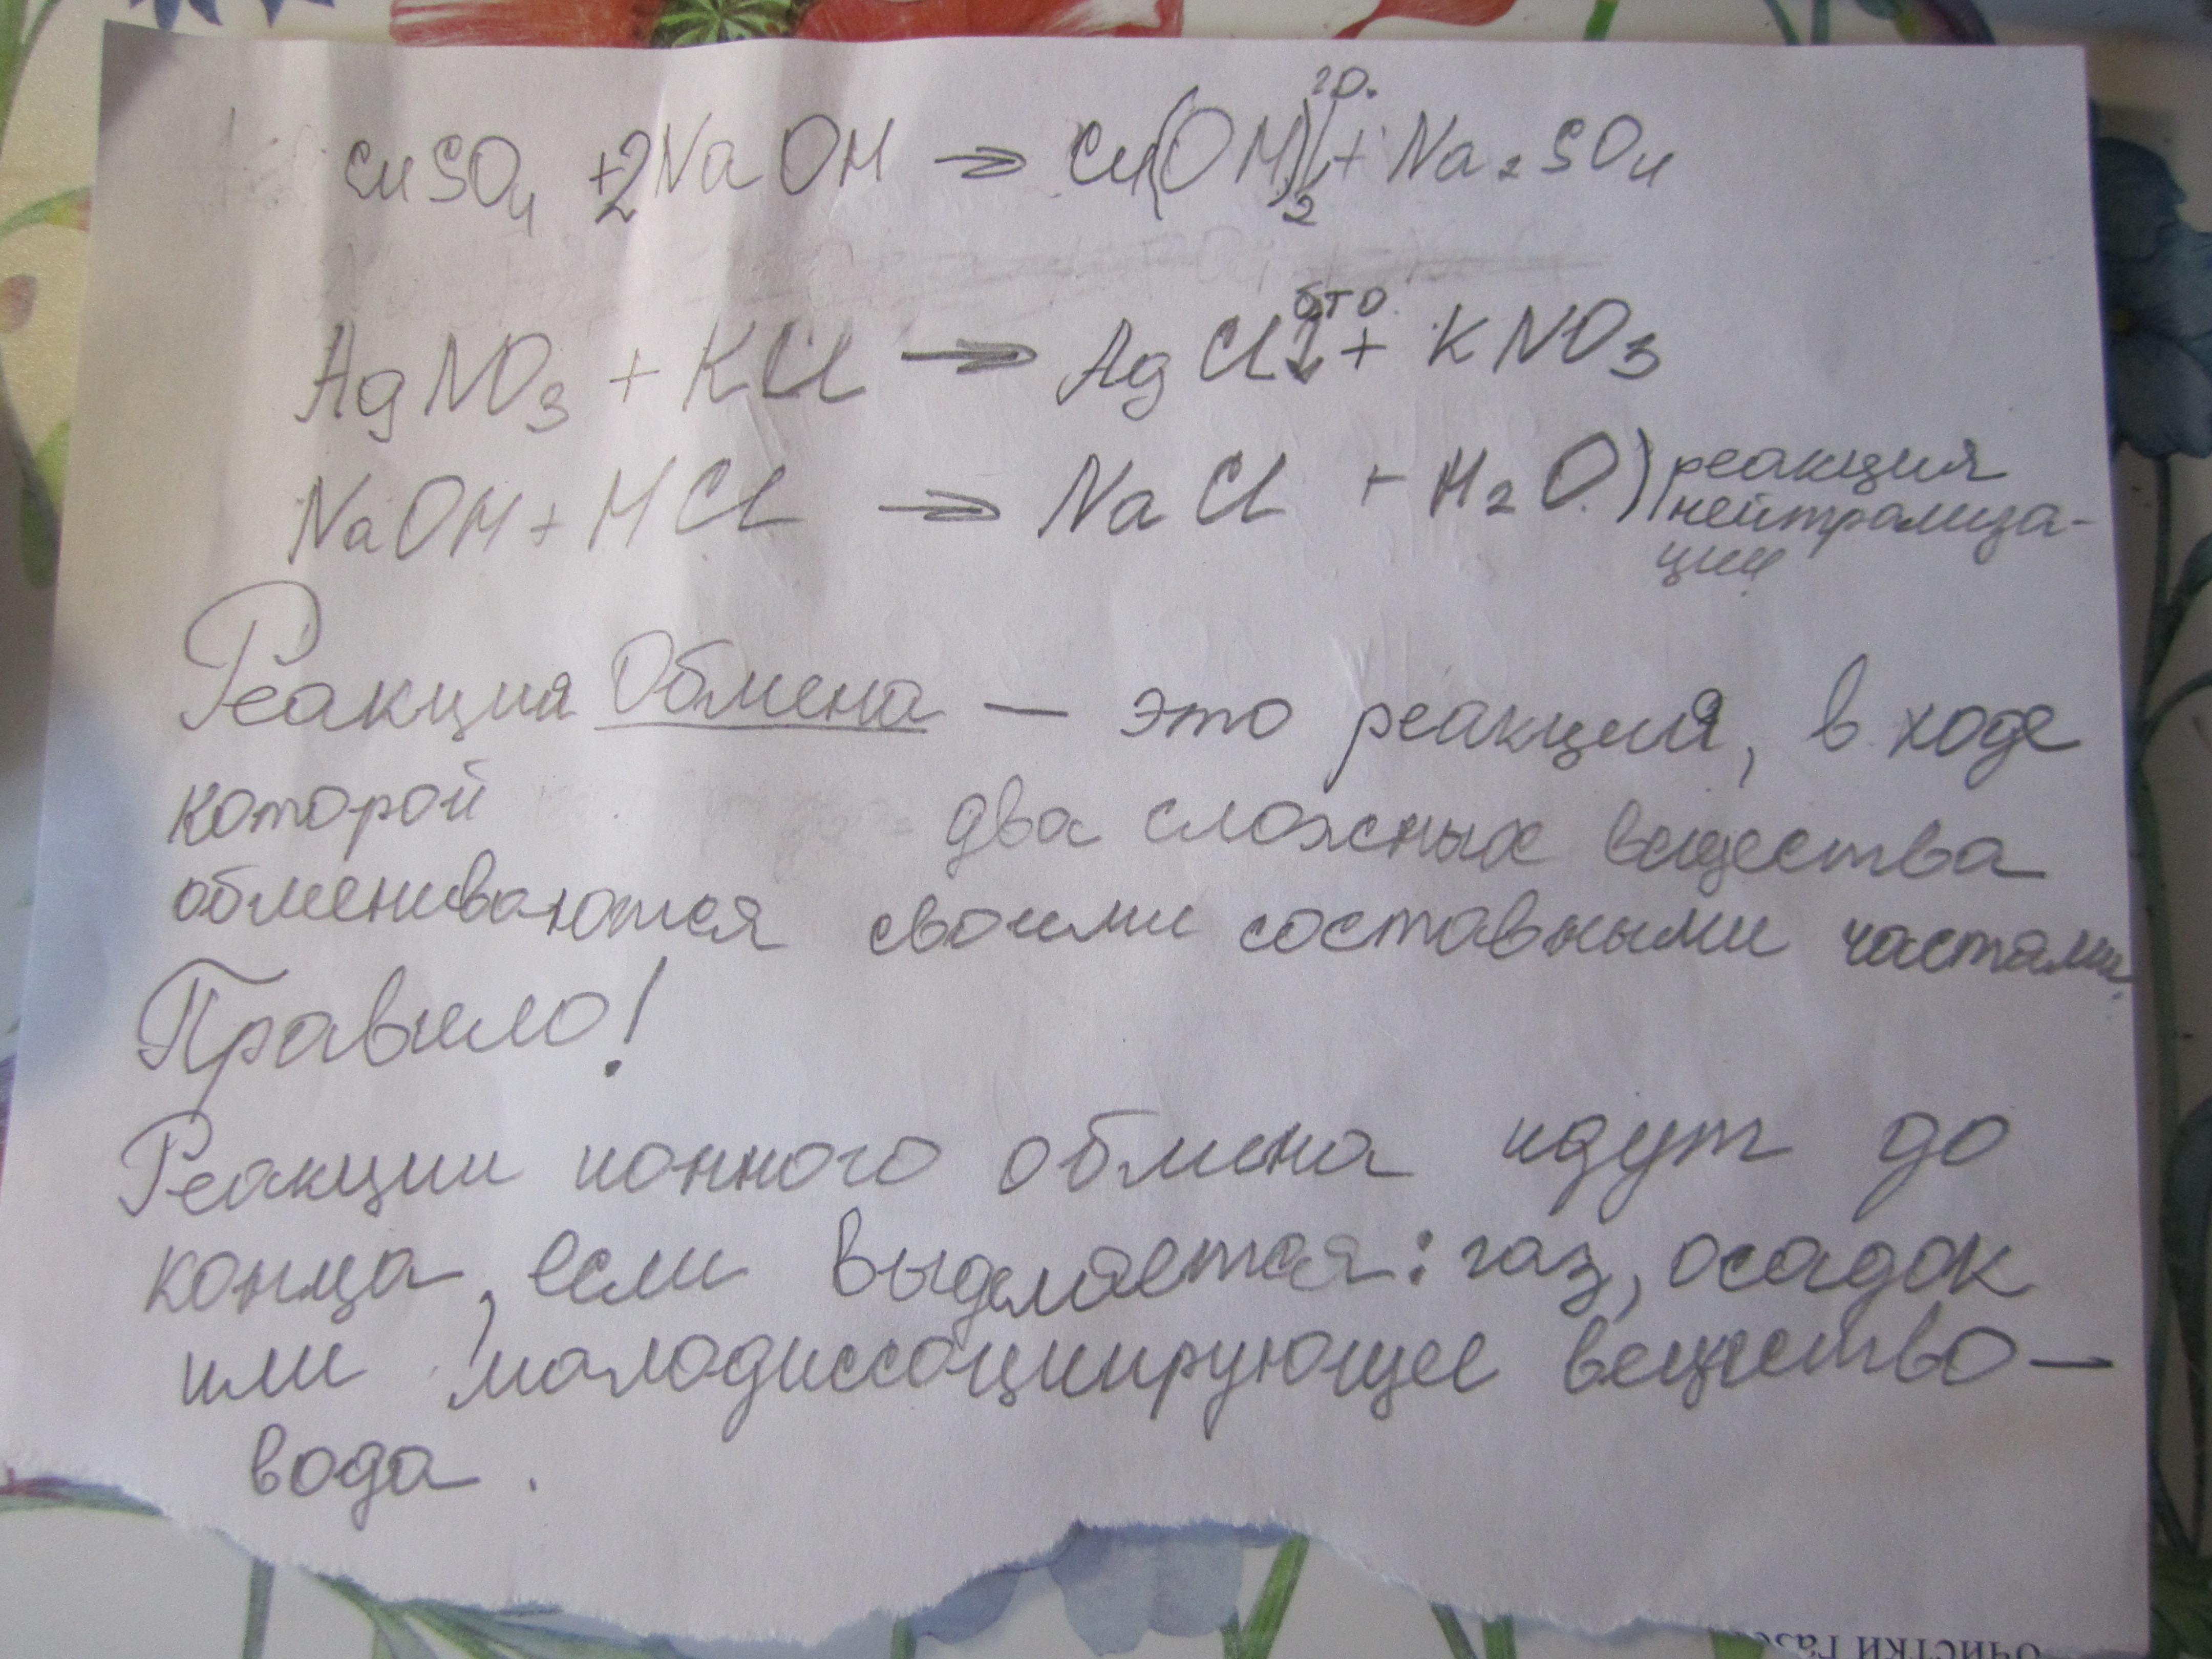 CuSO₄ + 2NaOH → Cu(OH)₂↓ го. + Na₂SO₄
AgNO₃ + KCl → AgCl↓ бто. + KNO₃
NaOH + HCl → NaCl + H₂O) реакция
нейтрализа-
ции
Реакция Обмена — это реакция, в ходе
которой два сложных вещества
обмениваются своими составными частями.
Правило!
Реакции ионного обмена идут до
конца, если выделяется: газ, осадок
или малодиссоциирующее вещество —
вода.
очистки газо